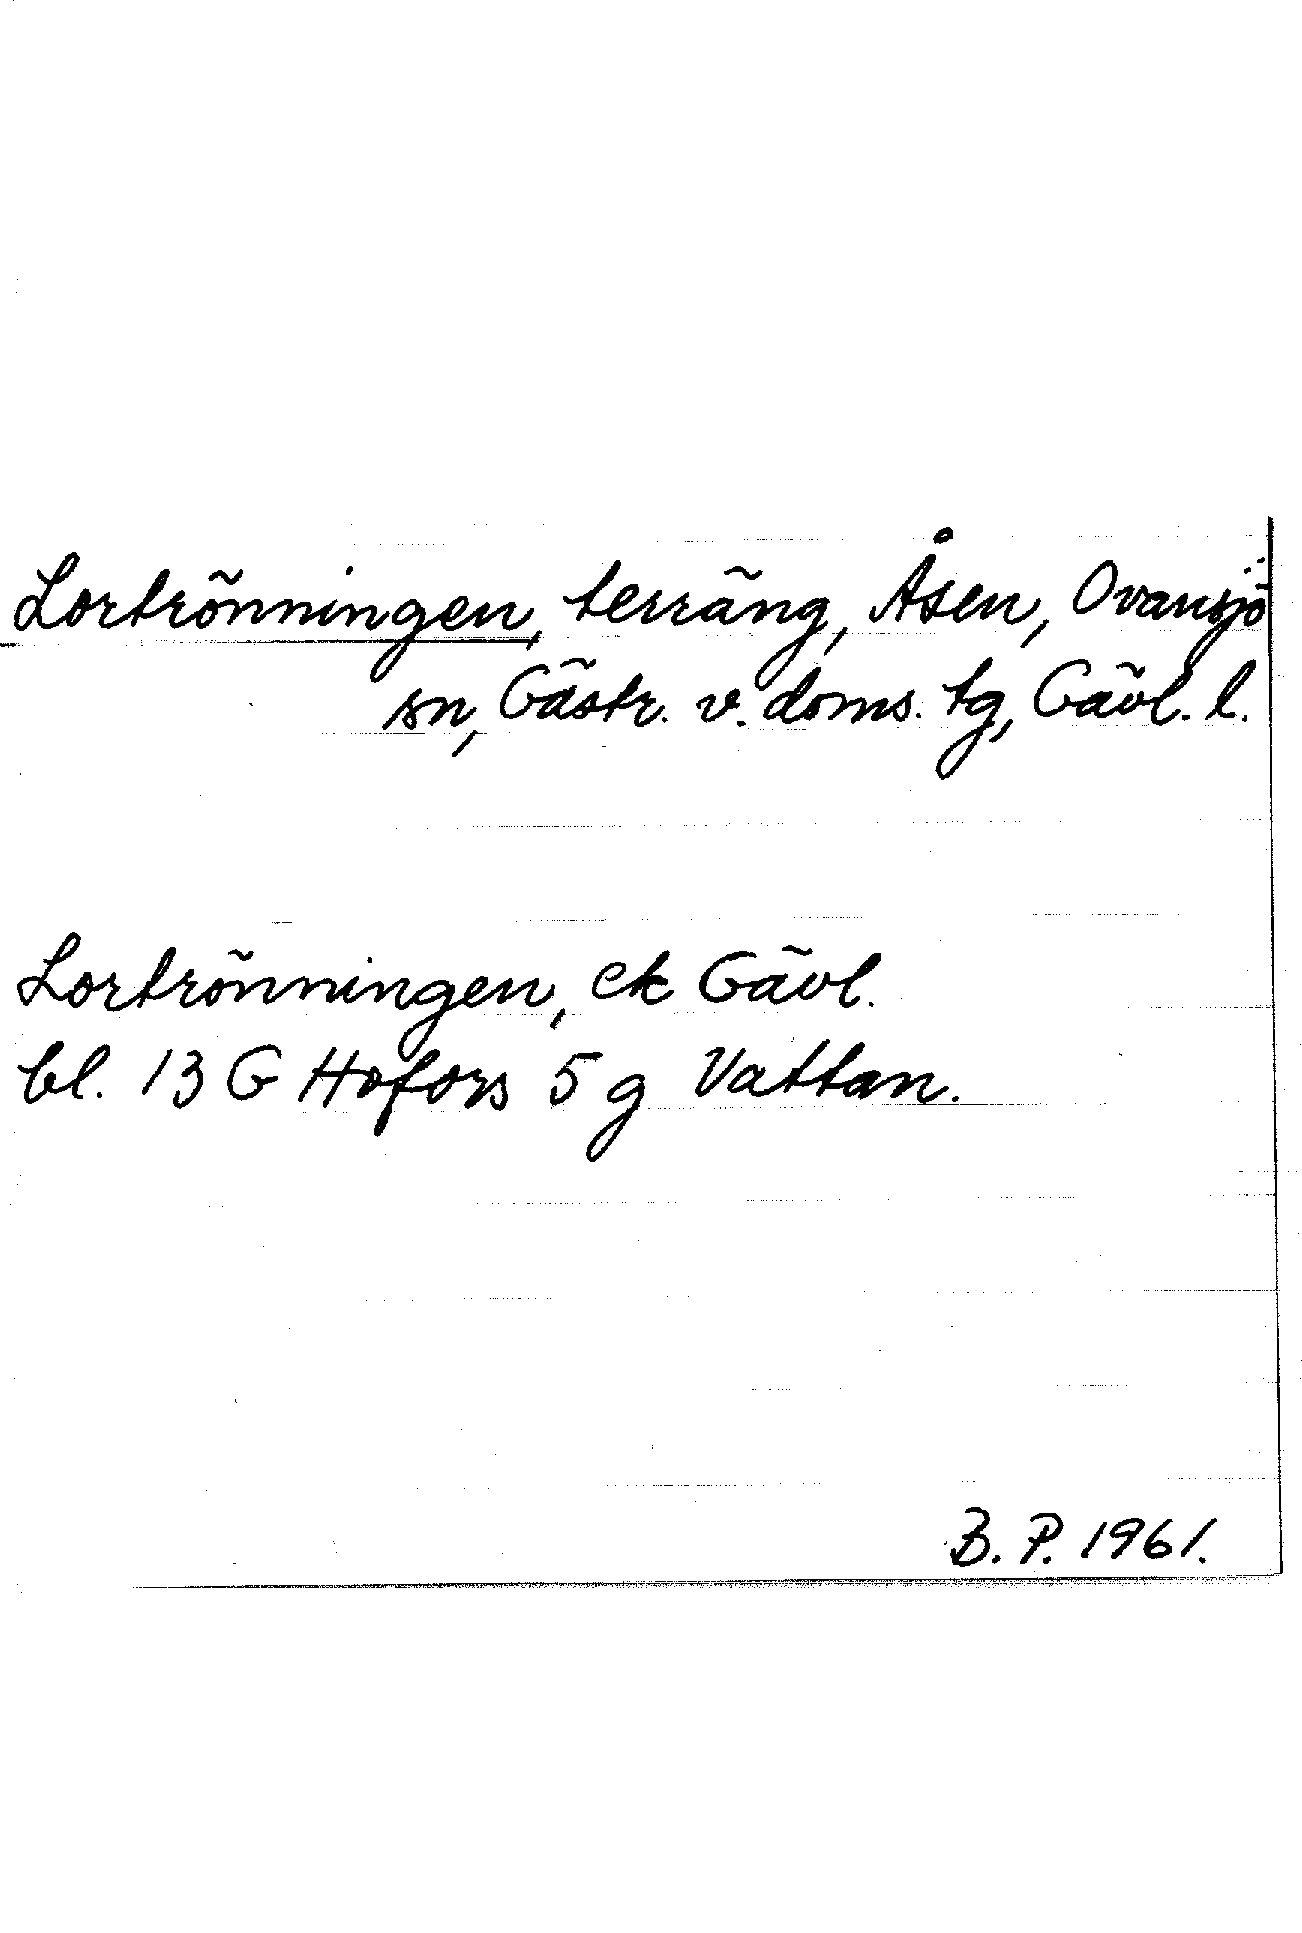 Lortrönningen, terräng, Åsen, Ovansjö
sn, Gästr. v. doms. tg, Gävl. l.
Lortrönningen, ek Gävl.
bl. 13 G Hofors 5 g Vattan.
B. P. 1961.